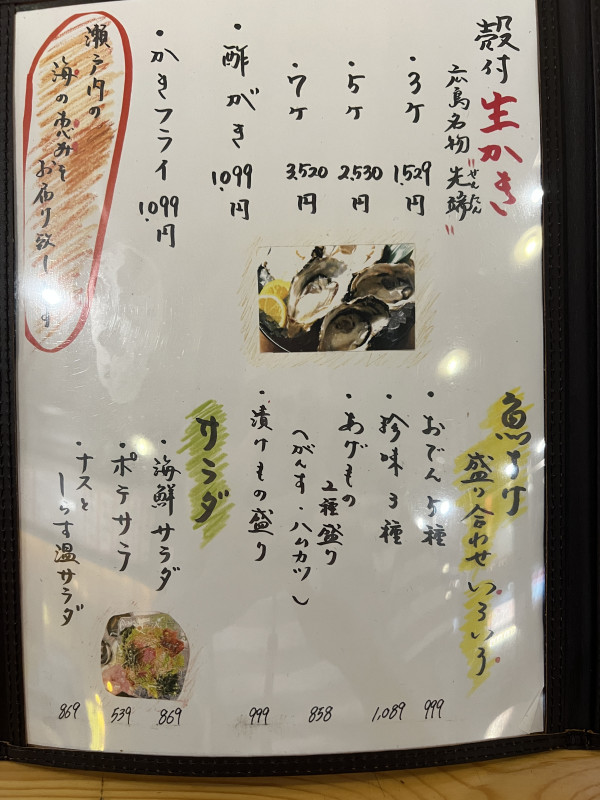 殻付 生かき
広島名物"先端"
せんたん
・3ケ 1,529円
・5ケ 2,530円
・7ケ 3,520円
・酢がき 1,099円
・かきフライ 1,099円
瀬戸内の
海の恵みを
お届け致します
魚すけ
盛り合わせいろいろ
・おでん 5種 999
・珍味 3種 1,089
・あげもの
2種盛り 858
(がんす・ハムカツ)
・漬けもの盛り 999
サラダ
・海鮮サラダ 869
・ポテサラ 539
・ナスと
しらす温サラダ 869